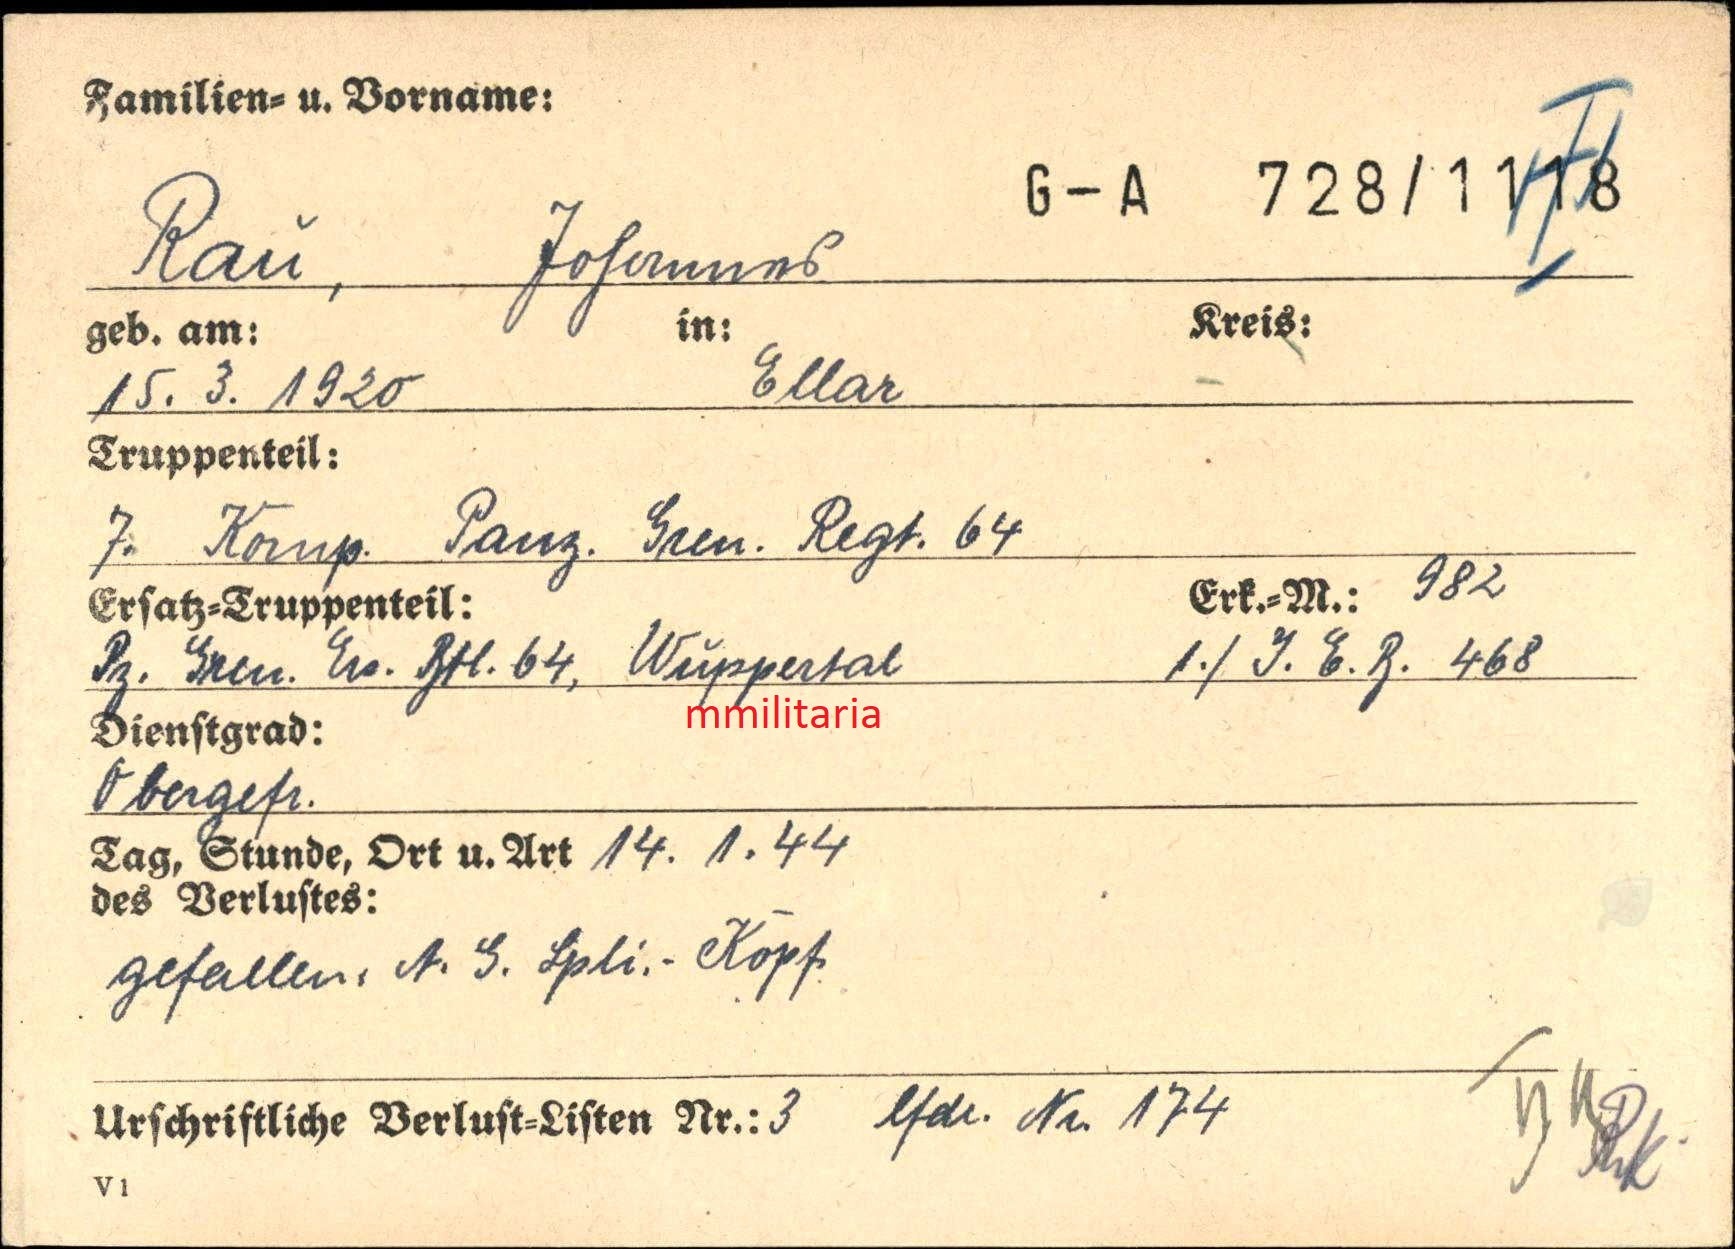 Familien- u. Vorname:
G-A 728/1118
Rau, Johannes
geb. am: in: Kreis:
15. 3. 1920 Ellar -
Truppenteil:
7. Komp. Panz. Gren. Regt. 64
Ersatz-Truppenteil: Erk.-M.: 982
Pz. Gren. Ers. Btl. 64, Wuppertal 1./ I. E. B. 468
mmilitaria
Dienstgrad:
Obergefr.
Tag, Stunde, Ort u. Art 14. 1. 44
des Verlustes:
gefallen, A. G. Spli.- Kopf
Urschriftliche Verlust-Listen Nr.: 3 lfdr. Nr. 174
V 1